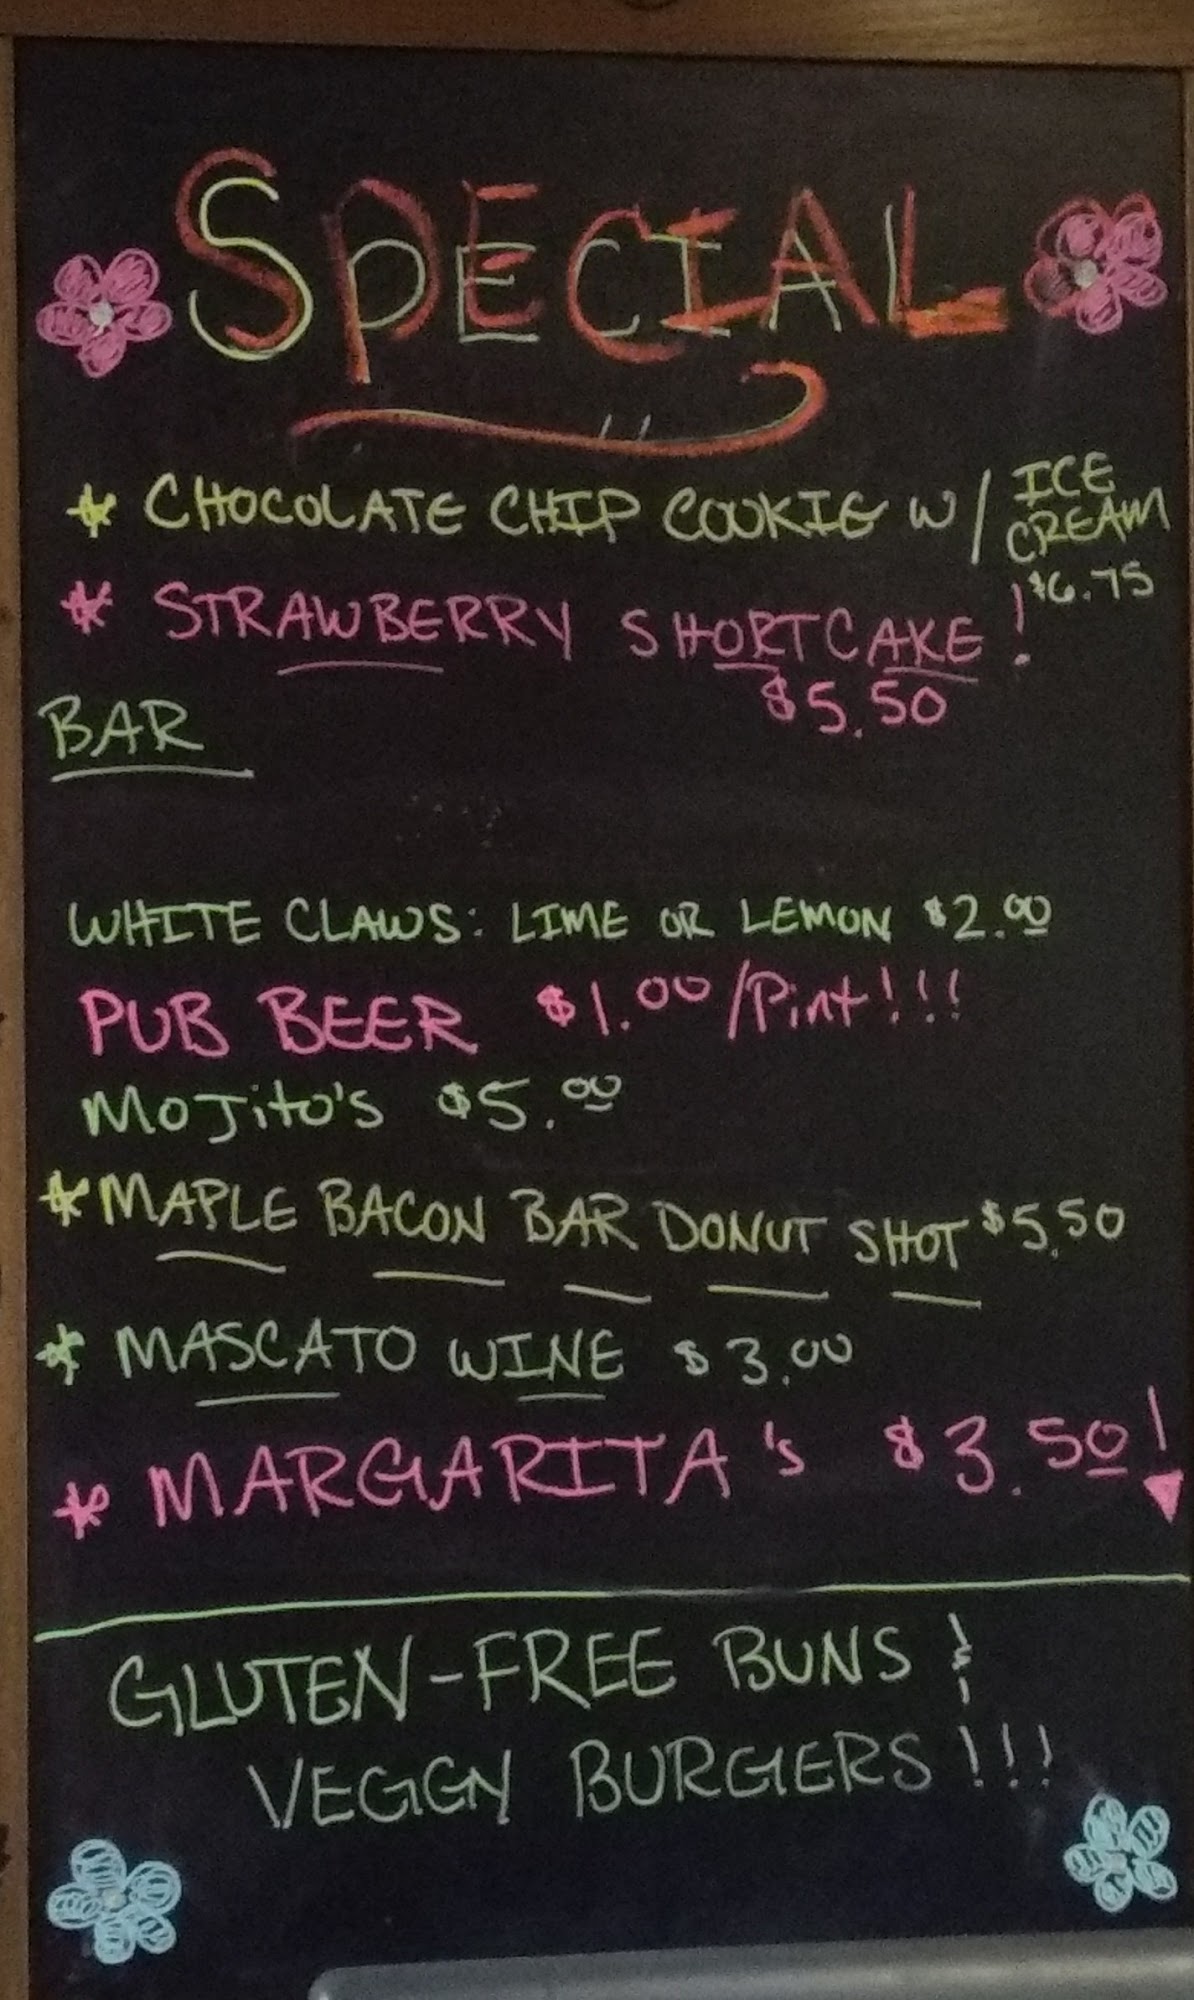 SPECIAL
* CHOCOLATE CHIP COOKIE W/ ICE CREAM
$6.75
* STRAWBERRY SHORTCAKE!
$5.50
BAR
WHITE CLAWS: LIME OR LEMON $2.00
PUB BEER $1.00/Pint!!!
MOJito's $5.00
* MAPLE BACON BAR DONUT SHOT $5.50
* MASCATO WINE $3.00
* MARGARITA's $3.50!
GLUTEN-FREE BUNS &
VEGGY BURGERS!!!